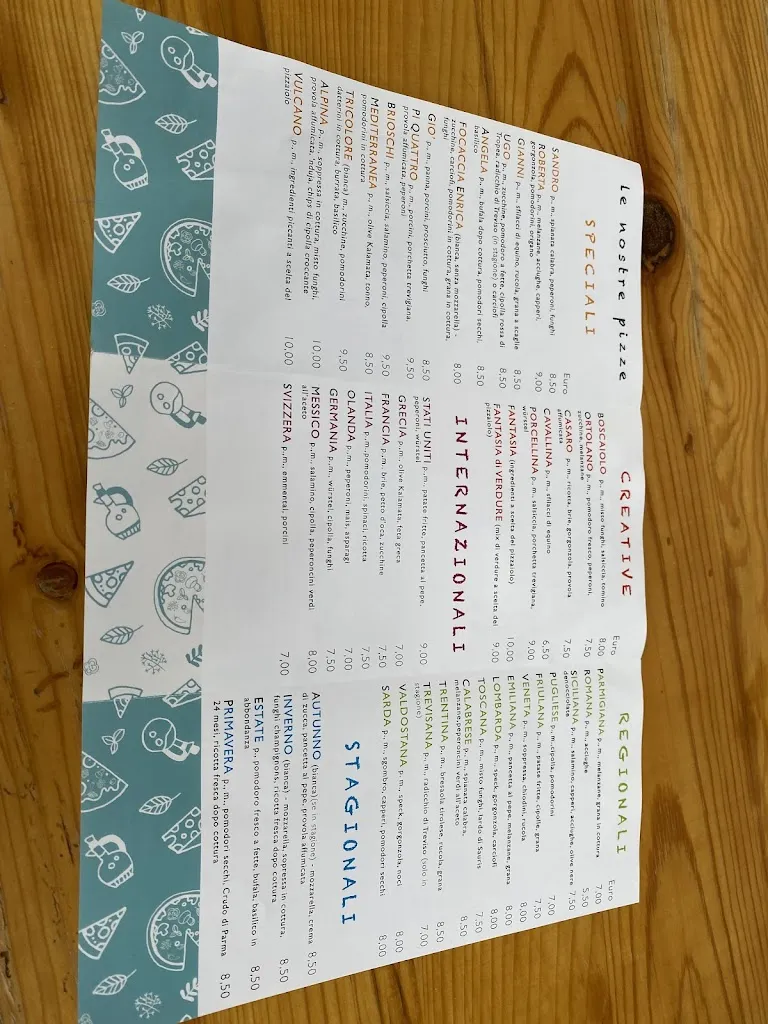 Le nostre pizze
SPECIALI
Euro
SANDRO p., m., spianata calabra, peperoni, funghi 8,50
ROBERTA p., m., melanzane, acciughe, capperi, 9,00
gorgonzola, pomodorini, origano
GIANNI p., m., sfilacci di equino, rucola, grana a scaglie 8,50
UGO p., m., zucchine, pomodoro a fette, cipolla rossa di 8,50
Tropea, radicchio di Treviso (in stagione) o carciofi
ANGELA p., m., bufala dopo cottura, pomodori secchi, 8,50
basilico
FOCACCIA ENRICA (bianca, senza mozzarella) - 8,00
zucchine, carciofi, pomodorini in cottura, grana in cottura,
funghi
GIO' p., m., panna, porcini, prosciutto, funghi 8,50
PI QUATTRO p., m., porcini, porchetta trevigiana, 9,50
provola affumicata, peperoni
BRIOSCHI p., m., salsiccia, salamino, peperoni, cipolla 9,50
MEDITERRANEA p., m., olive Kalamata, tonno, 8,50
pomodorini in cottura
TRICOLORE (bianca) m., zucchine, pomodorini 9,50
datterini in cottura, burrata, basilico
ALPINA p., m., soppressa in cottura, misto funghi, 10,00
provola affumicata, 'nduja, chips di cipolla croccante
VULCANO p., m., ingredienti piccanti a scelta del 10,00
pizzaiolo
CREATIVE
Euro
BOSCAIOLO p., m., misto funghi, salsiccia, tomino 8,00
ORTOLANO p., m., pomodoro fresco, peperoni, 7,50
zucchine, melanzane
CASARO p., m., ricotta, brie, gorgonzola, provola 7,50
affumicata
CAVALLINA p., m., sfilacci di equino 6,50
PORCELLINA p., m., salsiccia, porchetta trevigiana, 9,00
würstel
FANTASIA (ingredienti a scelta del pizzaiolo) 10,00
FANTASIA di VERDURE (mix di verdure a scelta del 9,00
pizzaiolo)
INTERNAZIONALI
STATI UNITI p., m., patate fritte, pancetta al pepe, 9,00
peperoni, wurstel
GRECIA p., m., olive Kalamata, feta greca 7,00
FRANCIA p., m., brie, petto d'oca, zucchine 7,50
ITALIA p., m., pomodorini, spinaci, ricotta 7,50
OLANDA p., m., peperoni, mais, asparagi 7,00
GERMANIA p., m., würstel, cipolla, funghi 7,50
MESSICO p., m., salamino, cipolla, peperoncini verdi 8,00
all'aceto
SVIZZERA p., m., emmental, porcini 7,00
REGIONALI
Euro
PARMIGIANA p., m., melanzane, grana in cottura 7,00
ROMANA p., m., acciughe 5,50
SICILIANA p., m., salamino, capperi, acciughe, olive nere 7,50
denocciolate
PUGLIESE p., m., cipolla, pomodorini 7,00
FRIULANA p., m., patate fritte, cipolle, grana 7,50
VENETA p., m., soppressa, chiodini, rucola 8,00
EMILIANA p., m., pancetta al pepe, melanzane, grana 8,00
LOMBARDA p., m., speck, gorgonzola, carciofi 8,00
TOSCANA p., m., misto funghi, lardo di Sauris 7,50
CALABRESE p., m., spianata calabra, 8,50
melanzane, peperoncini verdi all'aceto
TRENTINA p., m., bressola tirolese, rucola, grana 8,50
TREVISANA p., m., radicchio di Treviso (solo in 7,00
stagione)
VALDOSTANA p., m., speck, gorgonzola, noci 8,00
SARDA p., m., sgombro, capperi, pomodori secchi 8,00
STAGIONALI
AUTUNNO (bianca)(se in stagione) - mozzarella, crema 8,50
di zucca, pancetta al pepe, provola affumicata
INVERNO (bianca) - mozzarella, sopressa in cottura, 8,50
funghi champignons, ricotta fresca dopo cottura
ESTATE p., pomodoro fresco a fette, bufala, basilico in 8,50
abbondanza
PRIMAVERA p., m., pomodori secchi, Crudo di Parma 8,50
24 mesi, ricotta fresca dopo cottura